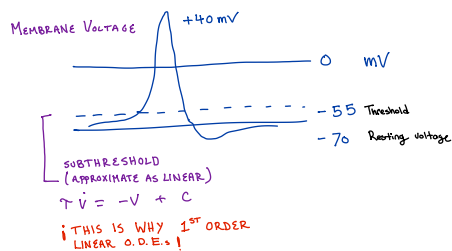 MEMBRANE VOLTAGE
+40mV
0 mV
-55 Threshold
-70 Resting voltage
SUBTHRESHOLD
(APPROXIMATE AS LINEAR)
τ v̇ = -v + c
¡ THIS IS WHY 1ST ORDER
LINEAR O.D.Es !